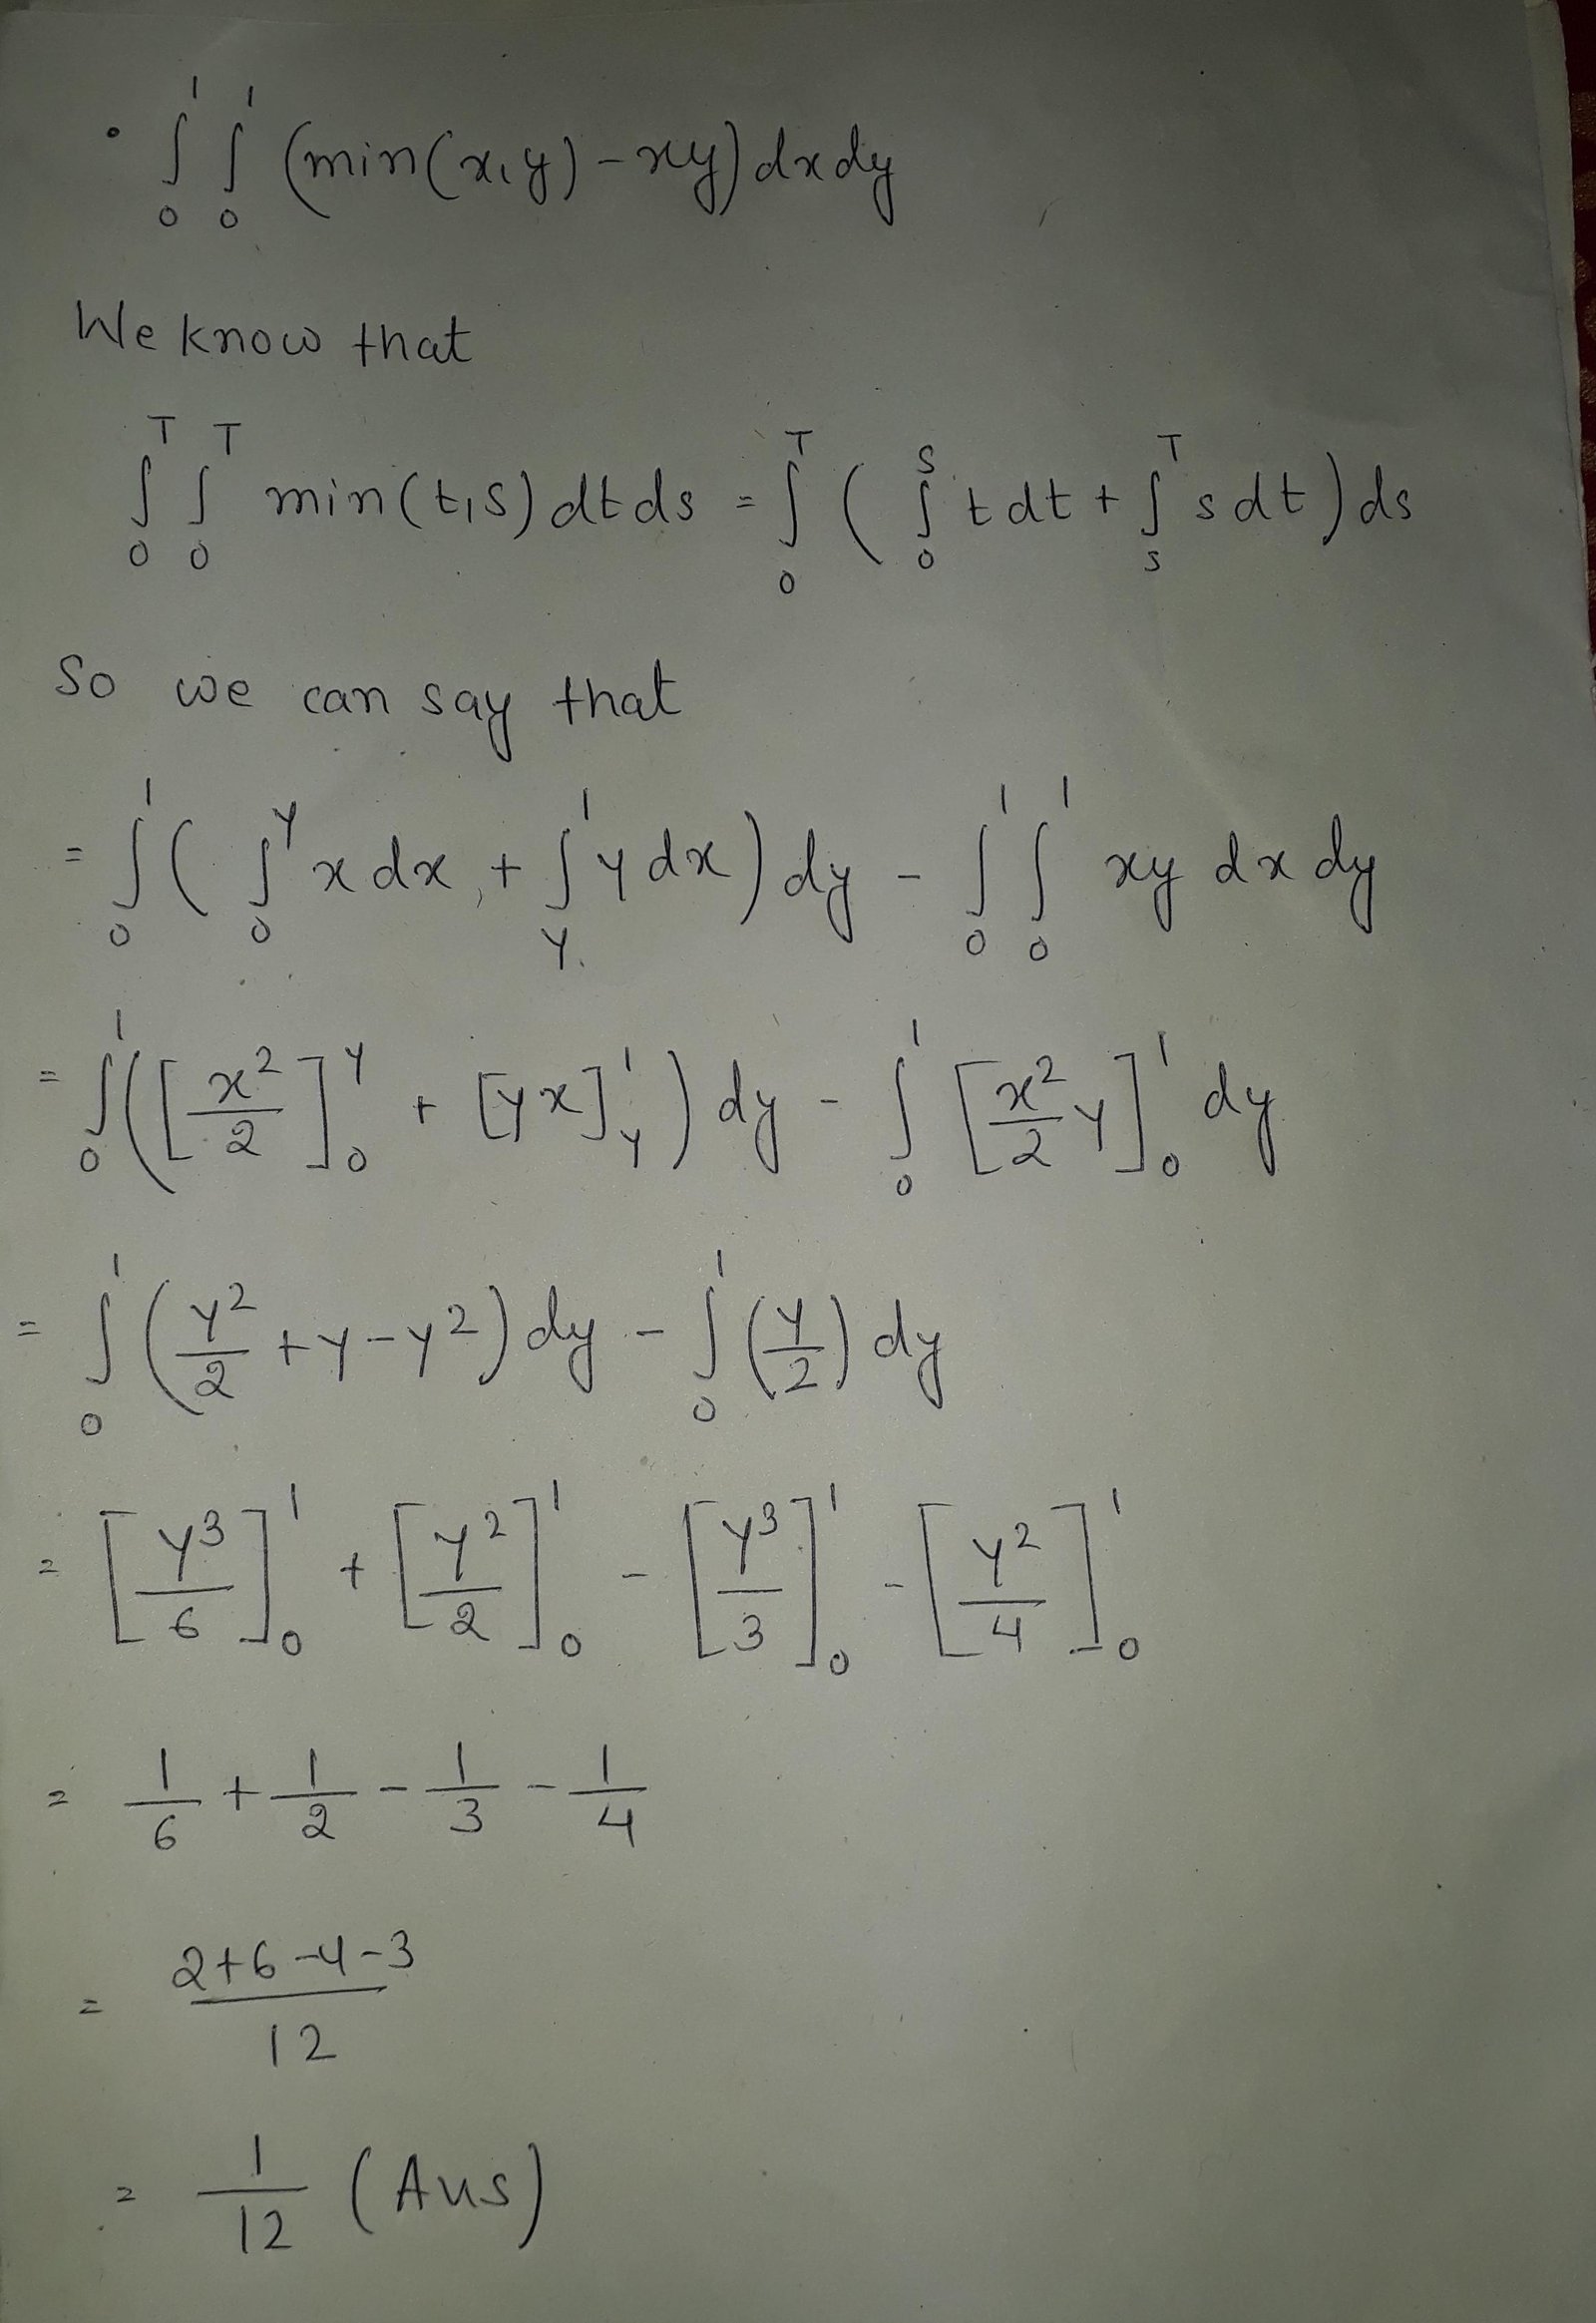 • ∫₀¹ ∫₀¹ (min(x,y) - xy) dx dy
We know that
∫₀ᵀ ∫₀ᵀ min(t,s) dt ds = ∫₀ᵀ ( ∫₀ˢ t dt + ∫ₛᵀ s dt ) ds
So we can say that
= ∫₀¹ ( ∫₀^y x dx + ∫_y^1 y dx ) dy - ∫₀¹ ∫₀¹ xy dx dy
= ∫₀¹ ( [x²/2]₀^y + [yx]_y^1 ) dy - ∫₀¹ [x²/2 y]₀¹ dy
= ∫₀¹ ( y²/2 + y - y² ) dy - ∫₀¹ (y/2) dy
= [y³/6]₀¹ + [y²/2]₀¹ - [y³/3]₀¹ - [y²/4]₀¹
= 1/6 + 1/2 - 1/3 - 1/4
= (2+6-4-3)/12
= 1/12 (Ans)